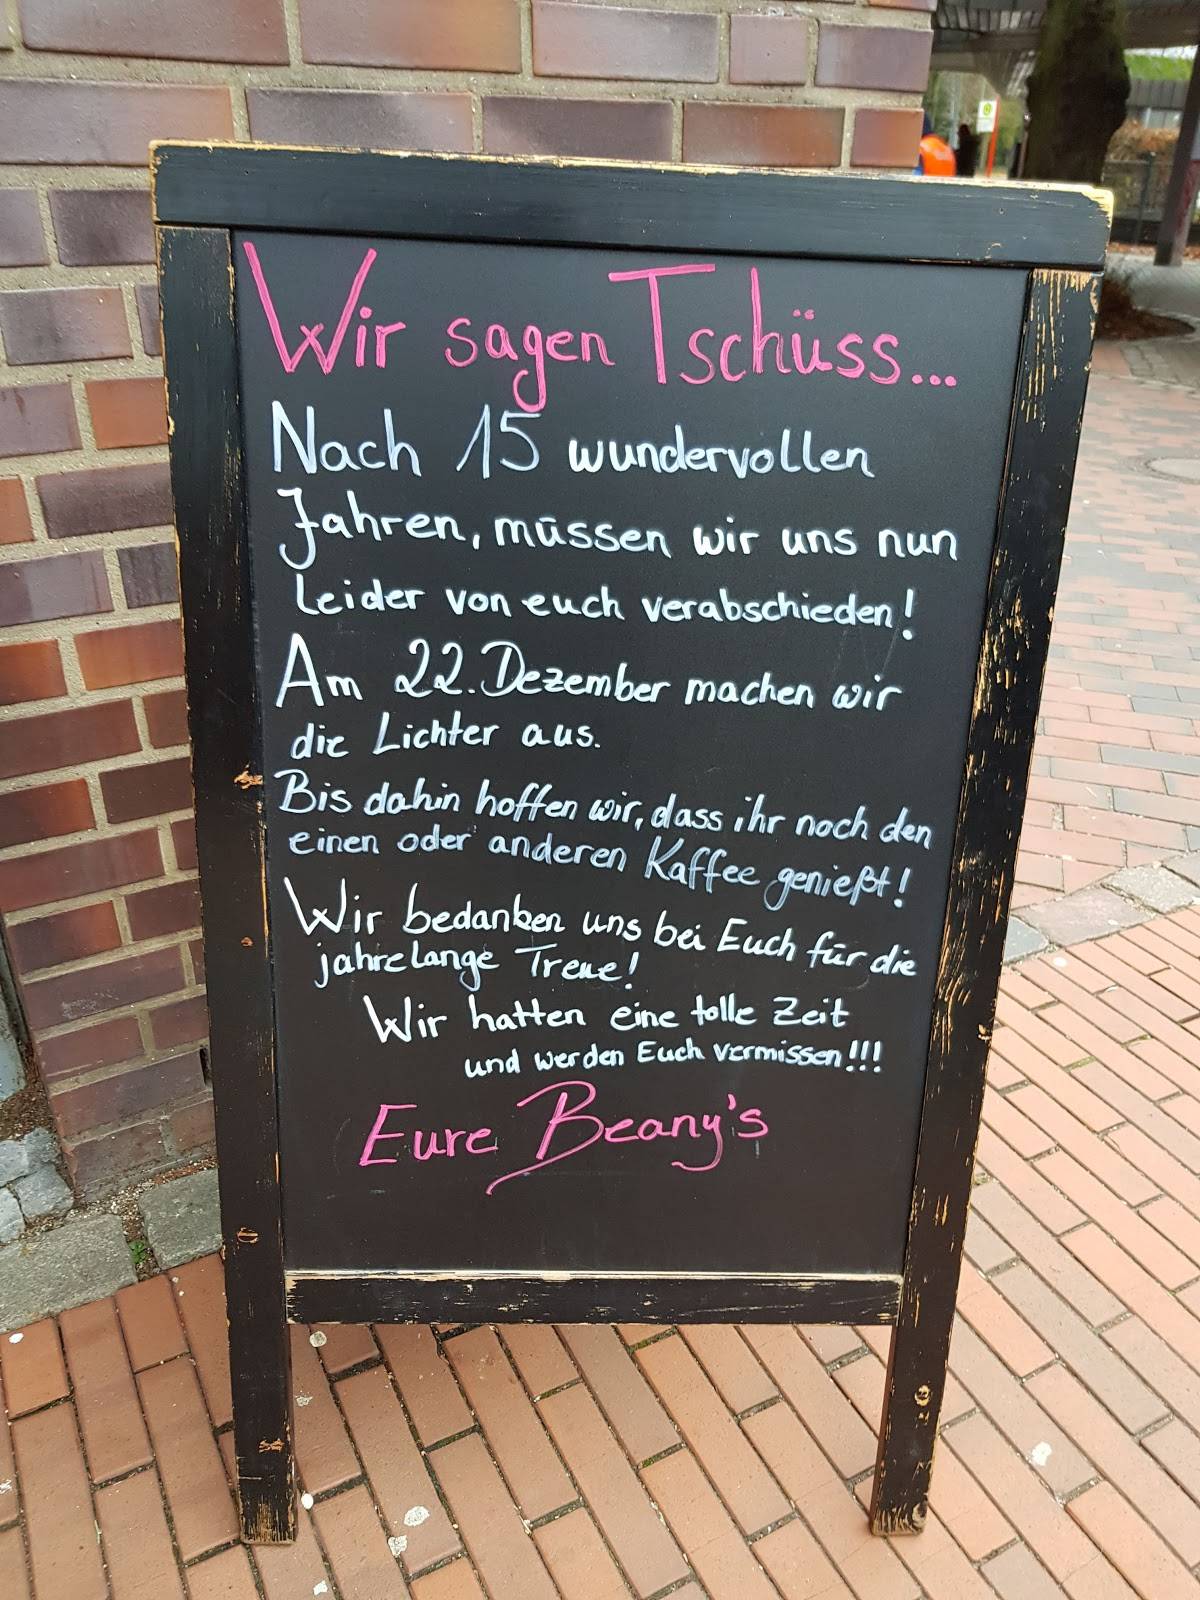 Wir sagen Tschüss...
Nach 15 wundervollen
Jahren, müssen wir uns nun
Leider von euch verabschieden!
Am 22. Dezember machen wir
die Lichter aus.
Bis dahin hoffen wir, dass ihr noch den
einen oder anderen Kaffee genießt!
Wir bedanken uns bei Euch für die
jahrelange Treue!
Wir hatten eine tolle Zeit
und werden Euch vermissen!!!
Eure Beany's